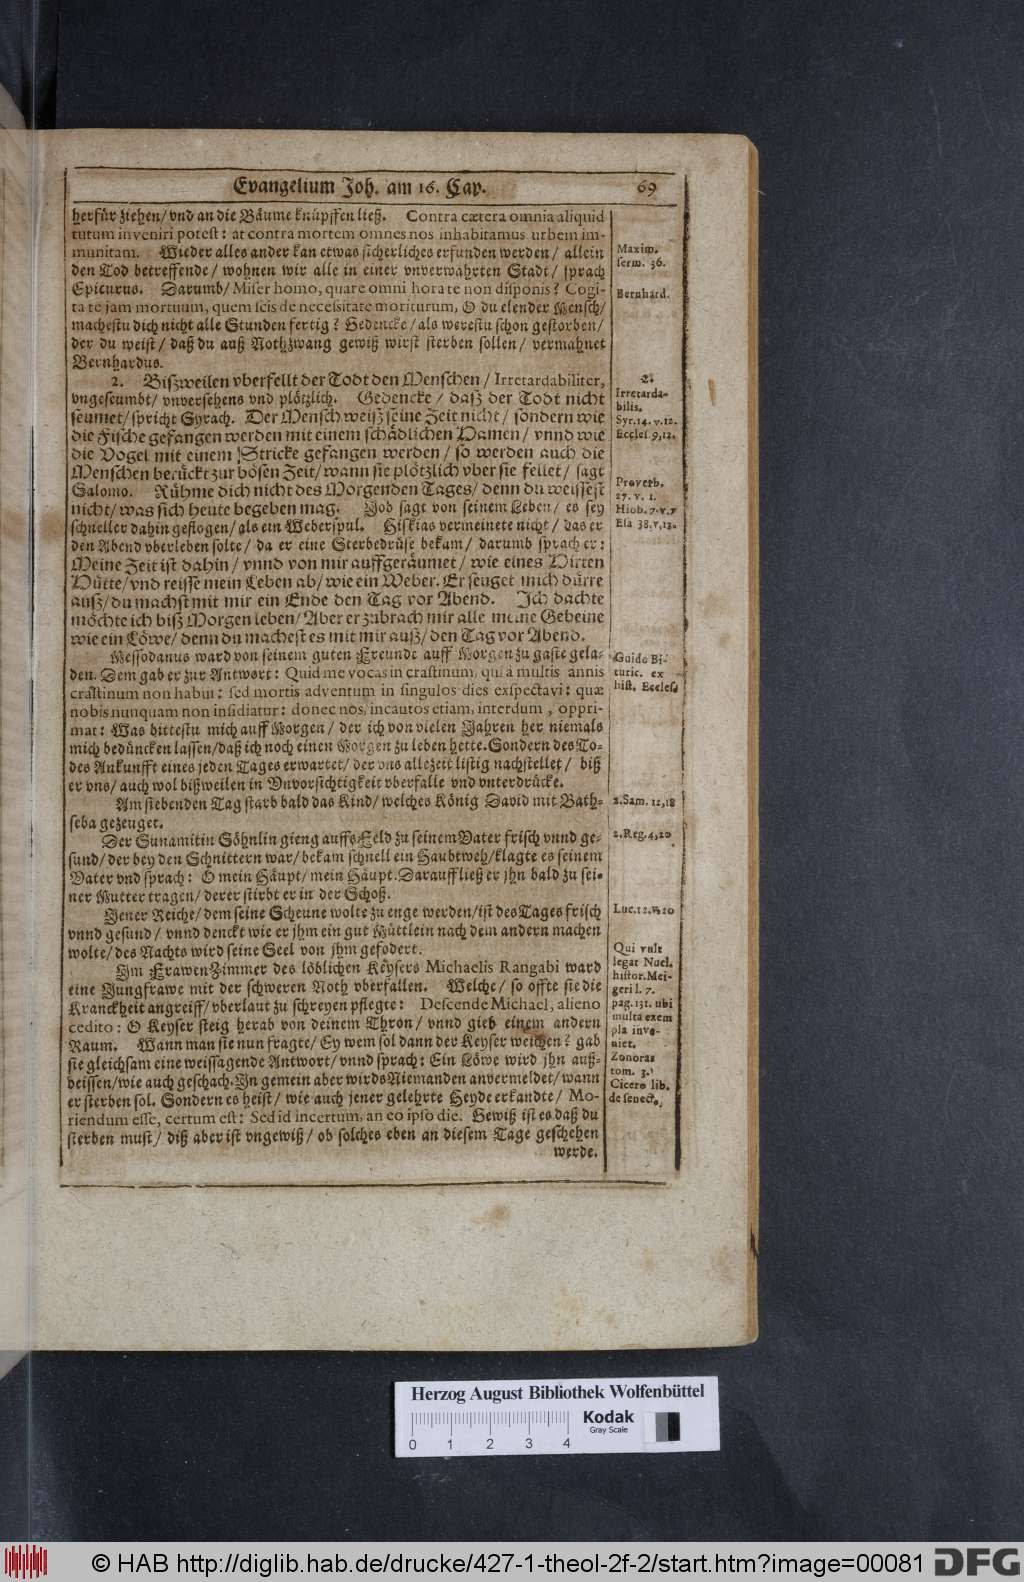 Evangelium Joh. am 16. Cap. 69
herfür ziehen/ vnd an die Bäume knüpffen ließ. Contra cætera omnia aliquid
tutum inveniri potest: at contra mortem omnes nos inhabitamus urbem im-
munitam. Wieder alles ander kan etwas sicherliches erfunden werden/ allein
den Tod betreffende/ wohnen wir alle in einer vnverwahrten Stadt/ sprach
Epicurus. Darumb/ Miser homo, quare omni hora te non disponis? Cogi-
ta te jam mortuum, quem scis de necessitate moriturum, O du elender Mensch/
machestu dich nicht alle Stunden fertig? Gedencke/ als werestu schon gestorben/
der du weist/ daß du auß Nothzwang gewiß wirst sterben sollen/ vermahnet
Bernhardus.
2. Bißweilen vberfellt der Todt den Menschen/ Irretardabiliter,
vngeseumbt/ vnversehens vnd plötzlich. Gedencke/ daß der Todt nicht
seumet/ spricht Syrach. Der Mensch weiß seine Zeit nicht/ sondern wie
die Fische gefangen werden mit einem schädlichen Hamen/ vnnd wie
die Vogel mit einem Stricke gefangen werden/ so werden auch die
Menschen berückt zur bösen Zeit/ wann sie plötzlich vber sie fellet/ sagt
Salomo. Rühme dich nicht des Morgenden Tages/ denn du weissest
nicht/ was sich heute begeben mag. Job sagt von seinem Leben/ es sey
schneller dahin geflogen/ als ein Weberspul. Hiskias vermeinete nicht/ das er
den Abend vberleben solte/ da er eine Sterbedrüse bekam/ darumb sprach er:
Meine Zeit ist dahin/ vnnd von mir auffgeräumet/ wie eines Hirten
Hütte/ vnd reisse mein Leben ab/ wie ein Weber. Er seuget mich dürre
auß/ du machst mit mir ein Ende den Tag vor Abend. Ich dachte
möchte ich biß Morgen leben/ Aber er zubrach mir alle meine Gebeine
wie ein Löwe/ denn du machest es mit mir auß/ den Tag vor Abend.
Messodanus ward von seinem guten Freunde auff Morgen zu gaste gela-
den. Dem gab er zur Antwort: Quid me vocas in crastinum, qui à multis annis
crastinum non habui: sed mortis adventum in singulos dies exspectavi: quæ
nobis nunquam non insidiatur: donec nos, incautos etiam, interdum, oppri-
mat: Was bittestu mich auff Morgen/ der ich von vielen Jahren her niemals
mich bedüncken lassen/ daß ich noch einen Morgen zu leben hette. Sondern des To-
des Ankunfft eines jeden Tages erwartet/ der vns allezeit listig nachstellet/ biß
er vns/ auch wol bißweilen in Vnvorsichtigkeit vberfalle vnd vnterdrücke.
Am siebenden Tag starb bald das Kind/ welches König David mit Bath-
seba gezeuget.
Der Sunamitin Söhnlin gieng auffs Feld zu seinem Vater frisch vnnd ge-
sund/ der bey den Schnittern war/ bekam schnell ein Haubtweh/ klagte es seinem
Vater vnd sprach: O mein Häupt/ mein Häupt. Darauff ließ er jhn bald zu sei-
ner Mutter tragen/ derer stirbt er in der Schoß.
Jener Reiche/ dem seine Scheune wolte zu enge werden/ ist des Tages frisch
vnnd gesund/ vnnd denckt wie er jhm ein gut Müttlein nach dem andern machen
wolte/ des Nachts wird seine Seel von jhm gefodert.
Im FrawenZimmer des löblichen Keysers Michaelis Rangabi ward
eine Jungfrawe mit der schweren Noth vberfallen. Welche/ so offte sie die
Kranckheit angreiff/ vberlaut zu schreyen pflegte: Descende Michael, alieno
cedito: O Keyser steig herab von deinem Thron/ vnnd gieb einem andern
Raum. Wann man sie nun fragte/ Ey wem sol dann der Keyser weichen? gab
sie gleichsam eine weissagende Antwort/ vnnd sprach: Ein Löwe wird jhn auß-
beissen/ wie auch geschach. In gemein aber wirds Niemanden anvermeldet/ wann
er sterben sol. Sondern es heist/ wie auch jener gelehrte Heyde erkandte/ Mo-
riendum esse, certum est: Sed id incertum, an eo ipso die. Gewiß ist es daß du
sterben must/ diß aber ist vngewiß/ ob solches eben an diesem Tage geschehen
werde.
Maxim.
serm. 36.
Bernhard.
2.
Irretarda-
bilis.
Syr. 14. v. 12.
Eccles. 9, 12.
Proverb.
27. v. 1.
Hiob. 7. v. v
Esa 38. v, 12.
Guido Bi-
turic. ex
hist. Eccles.
2. Sam. 12, 18
2. Reg. 4, 20
Luc. 12. v. 20
Qui vult
legat Nucl.
histor. Mei-
geri l. 7.
pag. 131. ubi
multa exem
pla inve-
niet.
Zonoras
tom. 3.
Cicero lib.
de senect.
Herzog August Bibliothek Wolfenbüttel
Kodak
Gray Scale
0 1 2 3 4
© HAB http://diglib.hab.de/drucke/427-1-theol-2f-2/start.htm?image=00081
DFG